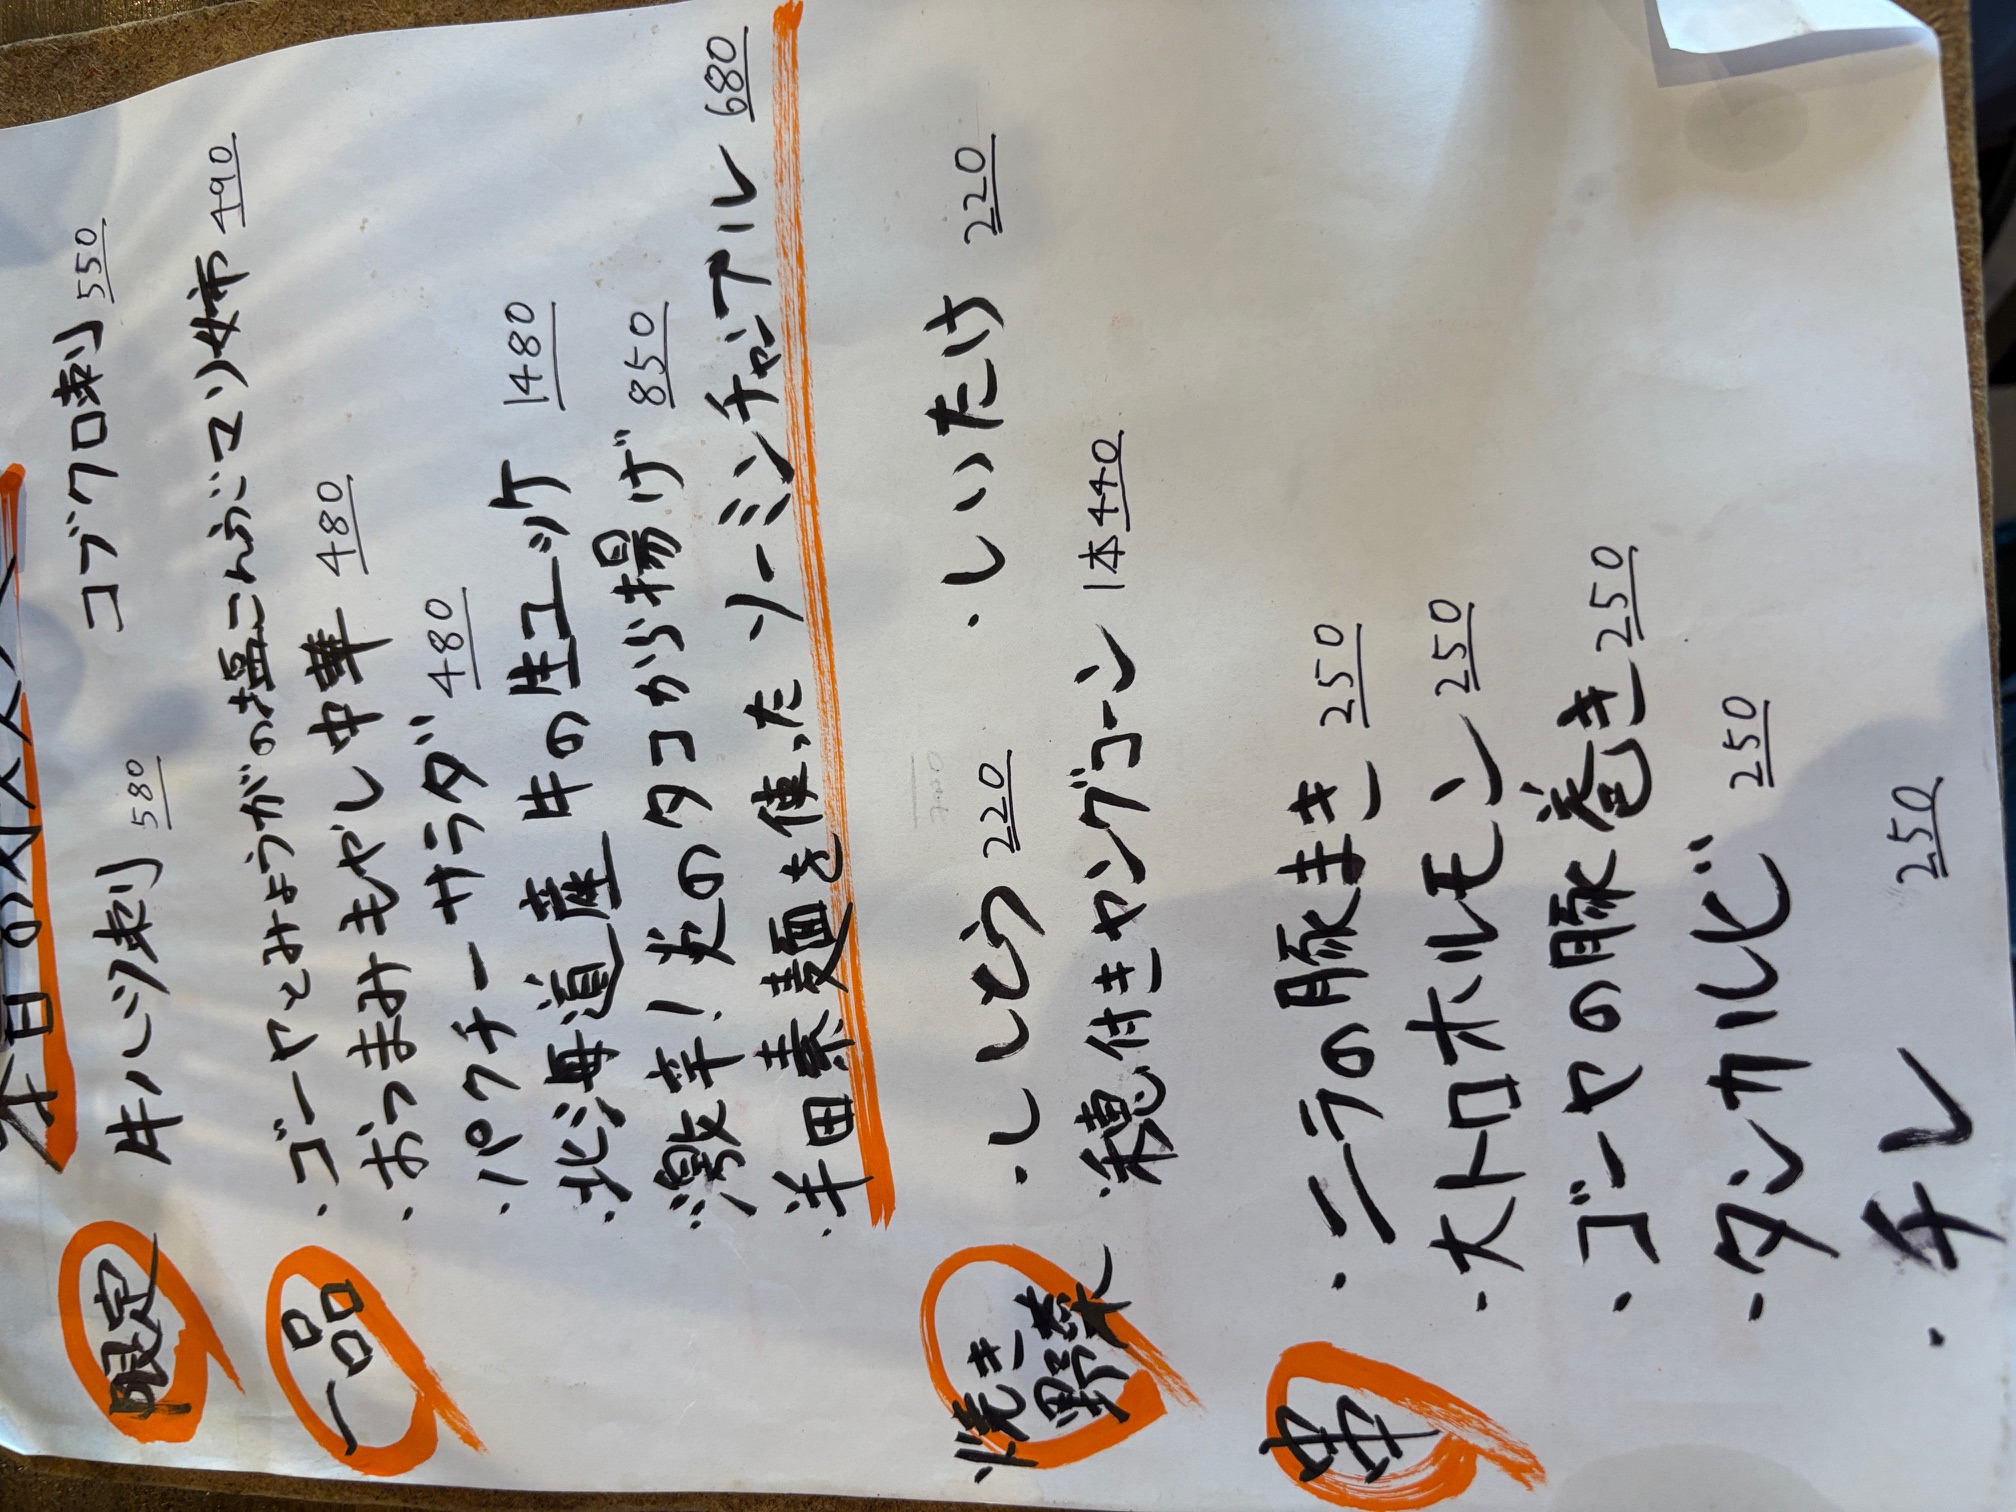 本日のオススメ
限定 牛ハツ刺 580 コブクロ刺 550
一品 ・ゴーヤとみょうがの塩こんぶごマリネ 490
・おつまみもやし中華 480
・パクチーサラダ 480
・北海道産 牛の生ユッケ 1480
・激辛!炎のタコから揚げ 850
・半田素麺を使った ソーミンチャンプール 680
焼き野菜 ・ししとう 220 ・しいたけ 220
・穂付きヤングコーン 1本440
串 ・ニラの豚まき 250
・大トロホルモン 250
・ゴーヤの豚巻き 250
・タンカルビ 250
・チレ 250